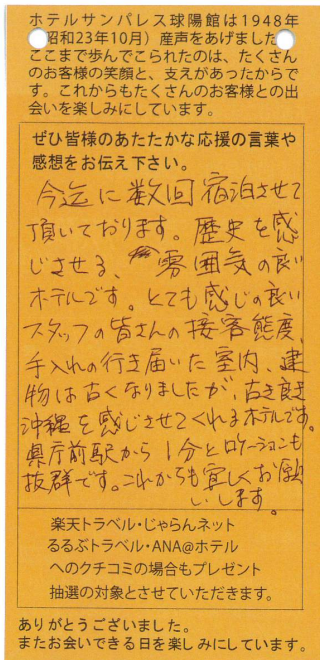 ホテルサンパレス球陽館は1948年
昭和23年10月）産声をあげました
ここまで歩んでこられたのは、たくさん
のお客様の笑顔と、支えがあったからで
す。これからもたくさんのお客様との出
会いを楽しみにしています。
ぜひ皆様のあたたかな応援の言葉や
感想をお伝え下さい。
今迄に数回宿泊させて
頂いております。歴史を感
じさせる、雰囲気の良い
ホテルです。とても感じの良い
スタッフの皆さんの接客態度、
手入れの行き届いた室内、建
物は古くなりましたが、古き良き
沖縄を感じさせてくれるホテルです。
県庁前駅から1分とロケーションも
抜群です。これからも宜しくお願
いします。
楽天トラベル・じゃらんネット
るるぶトラベル・ANA@ホテル
へのクチコミの場合もプレゼント
抽選の対象とさせていただきます。
ありがとうございました。
またお会いできる日を楽しみにしています。